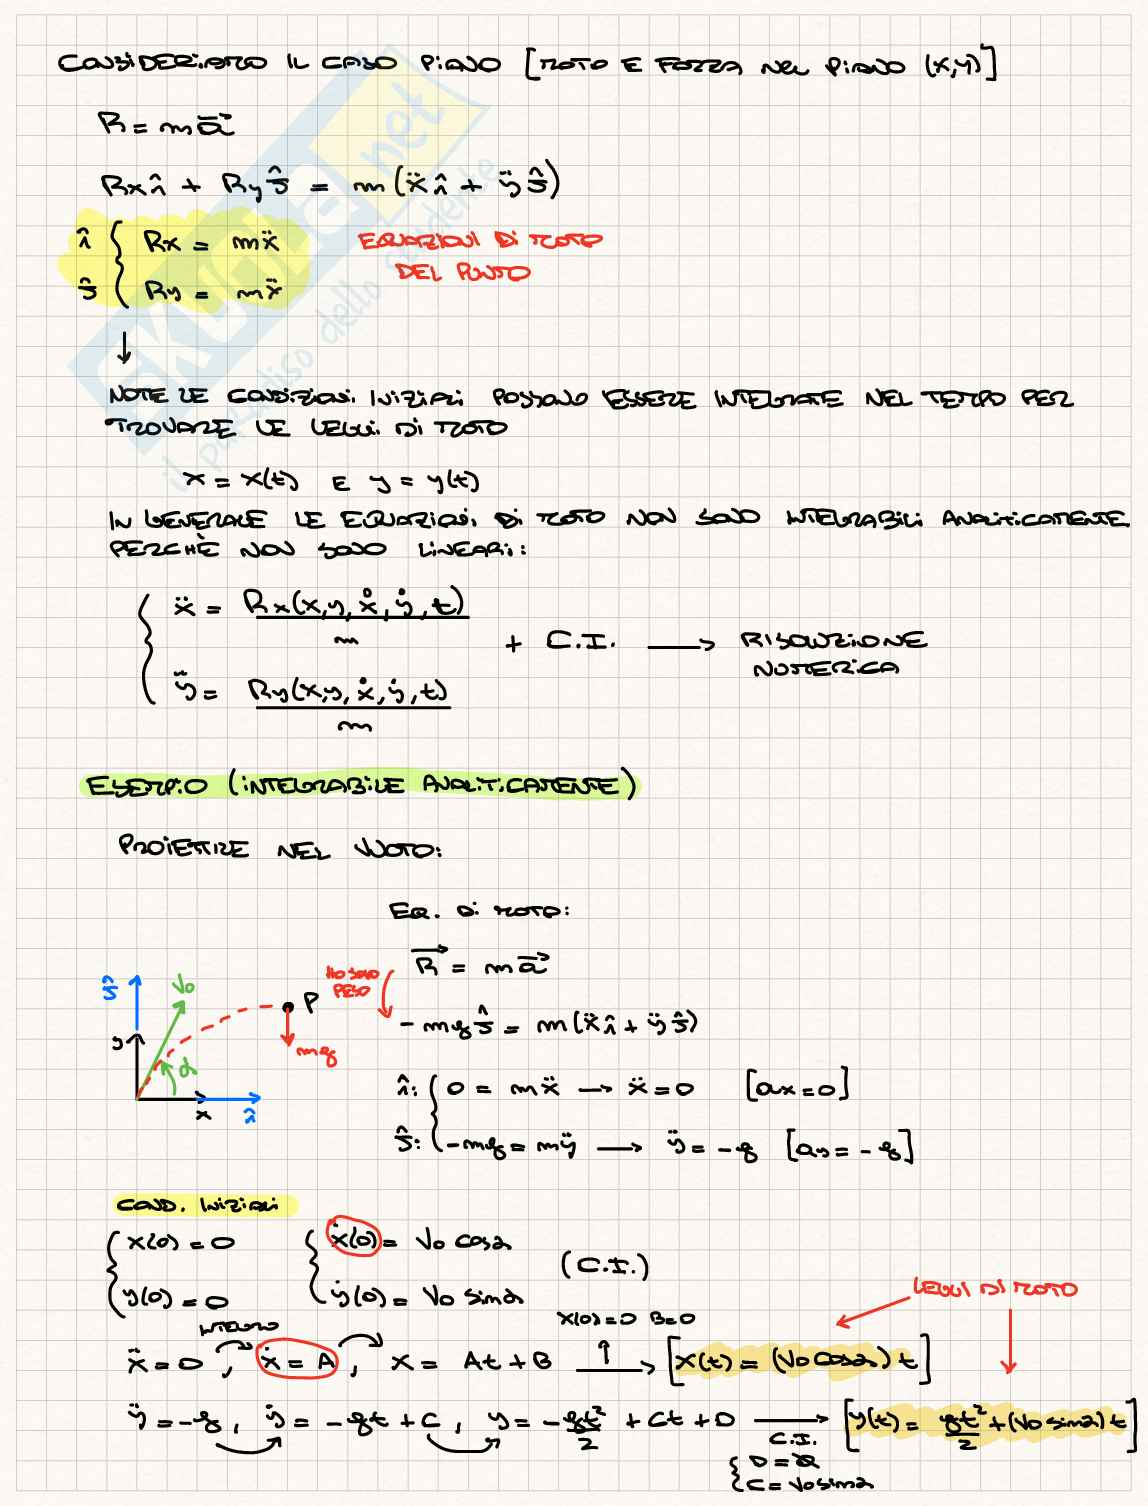 CONSIDERIAMO IL CASO PIANO [MOTO E FORZA NEL PIANO (X,Y)]
R = m a⃗
Rx î + Ry ĵ = m (ẍ î + ÿ ĵ)
î { Rx = mẍ
EQUAZIONI DI MOTO
DEL PUNTO
ĵ { Ry = mẍ
↓
NOTE LE CONDIZIONI INIZIALI POSSONO ESSERE INTEGRATE NEL TEMPO PER
TROVARE LE LEGGI DI MOTO
x = x(t) E y = y(t)
IN GENERALE LE EQUAZIONI DI MOTO NON SONO INTEGRABILI ANALITICAMENTE
PERCHÈ NON SONO LINEARI:
{ ẍ = Rx(x,y,ẋ,ẏ,t) / m
+ C.I. → RISOLUZIONE
NUMERICA
ÿ = Ry(x,y,ẋ,ẏ,t) / m
ESEMPIO (INTEGRABILE ANALITICAMENTE)
PROIETTILE NEL VUOTO:
EQ. DI MOTO:
R⃗ = m a⃗
HO SOLO
PESO
- mg ĵ = m (ẍ î + ÿ ĵ)
ĵ V₀ P
y α mg
x î
î: { 0 = mẍ → ẍ = 0 [ax = 0]
ĵ: { -mg = mÿ → ÿ = -g [ay = -g]
COND. INIZIALI
{ x(0) = 0 { ẋ(0) = V₀ cosα
(C.I.)
y(0) = 0 ẏ(0) = V₀ sinα
LEGGI DI MOTO
INTEGRO
X(0) = 0 B = 0
ẍ = 0 , ẋ = A , x = At + B → [x(t) = (V₀ cosα) t]
ÿ = -g , ẏ = -gt + C , y = -gt²/2 + Ct + D → [y(t) = gt²/2 + (V₀ sinα) t]
C.I.
{ D = 0
C = V₀ sinα
SKUOLA.net
il paradiso dello studente